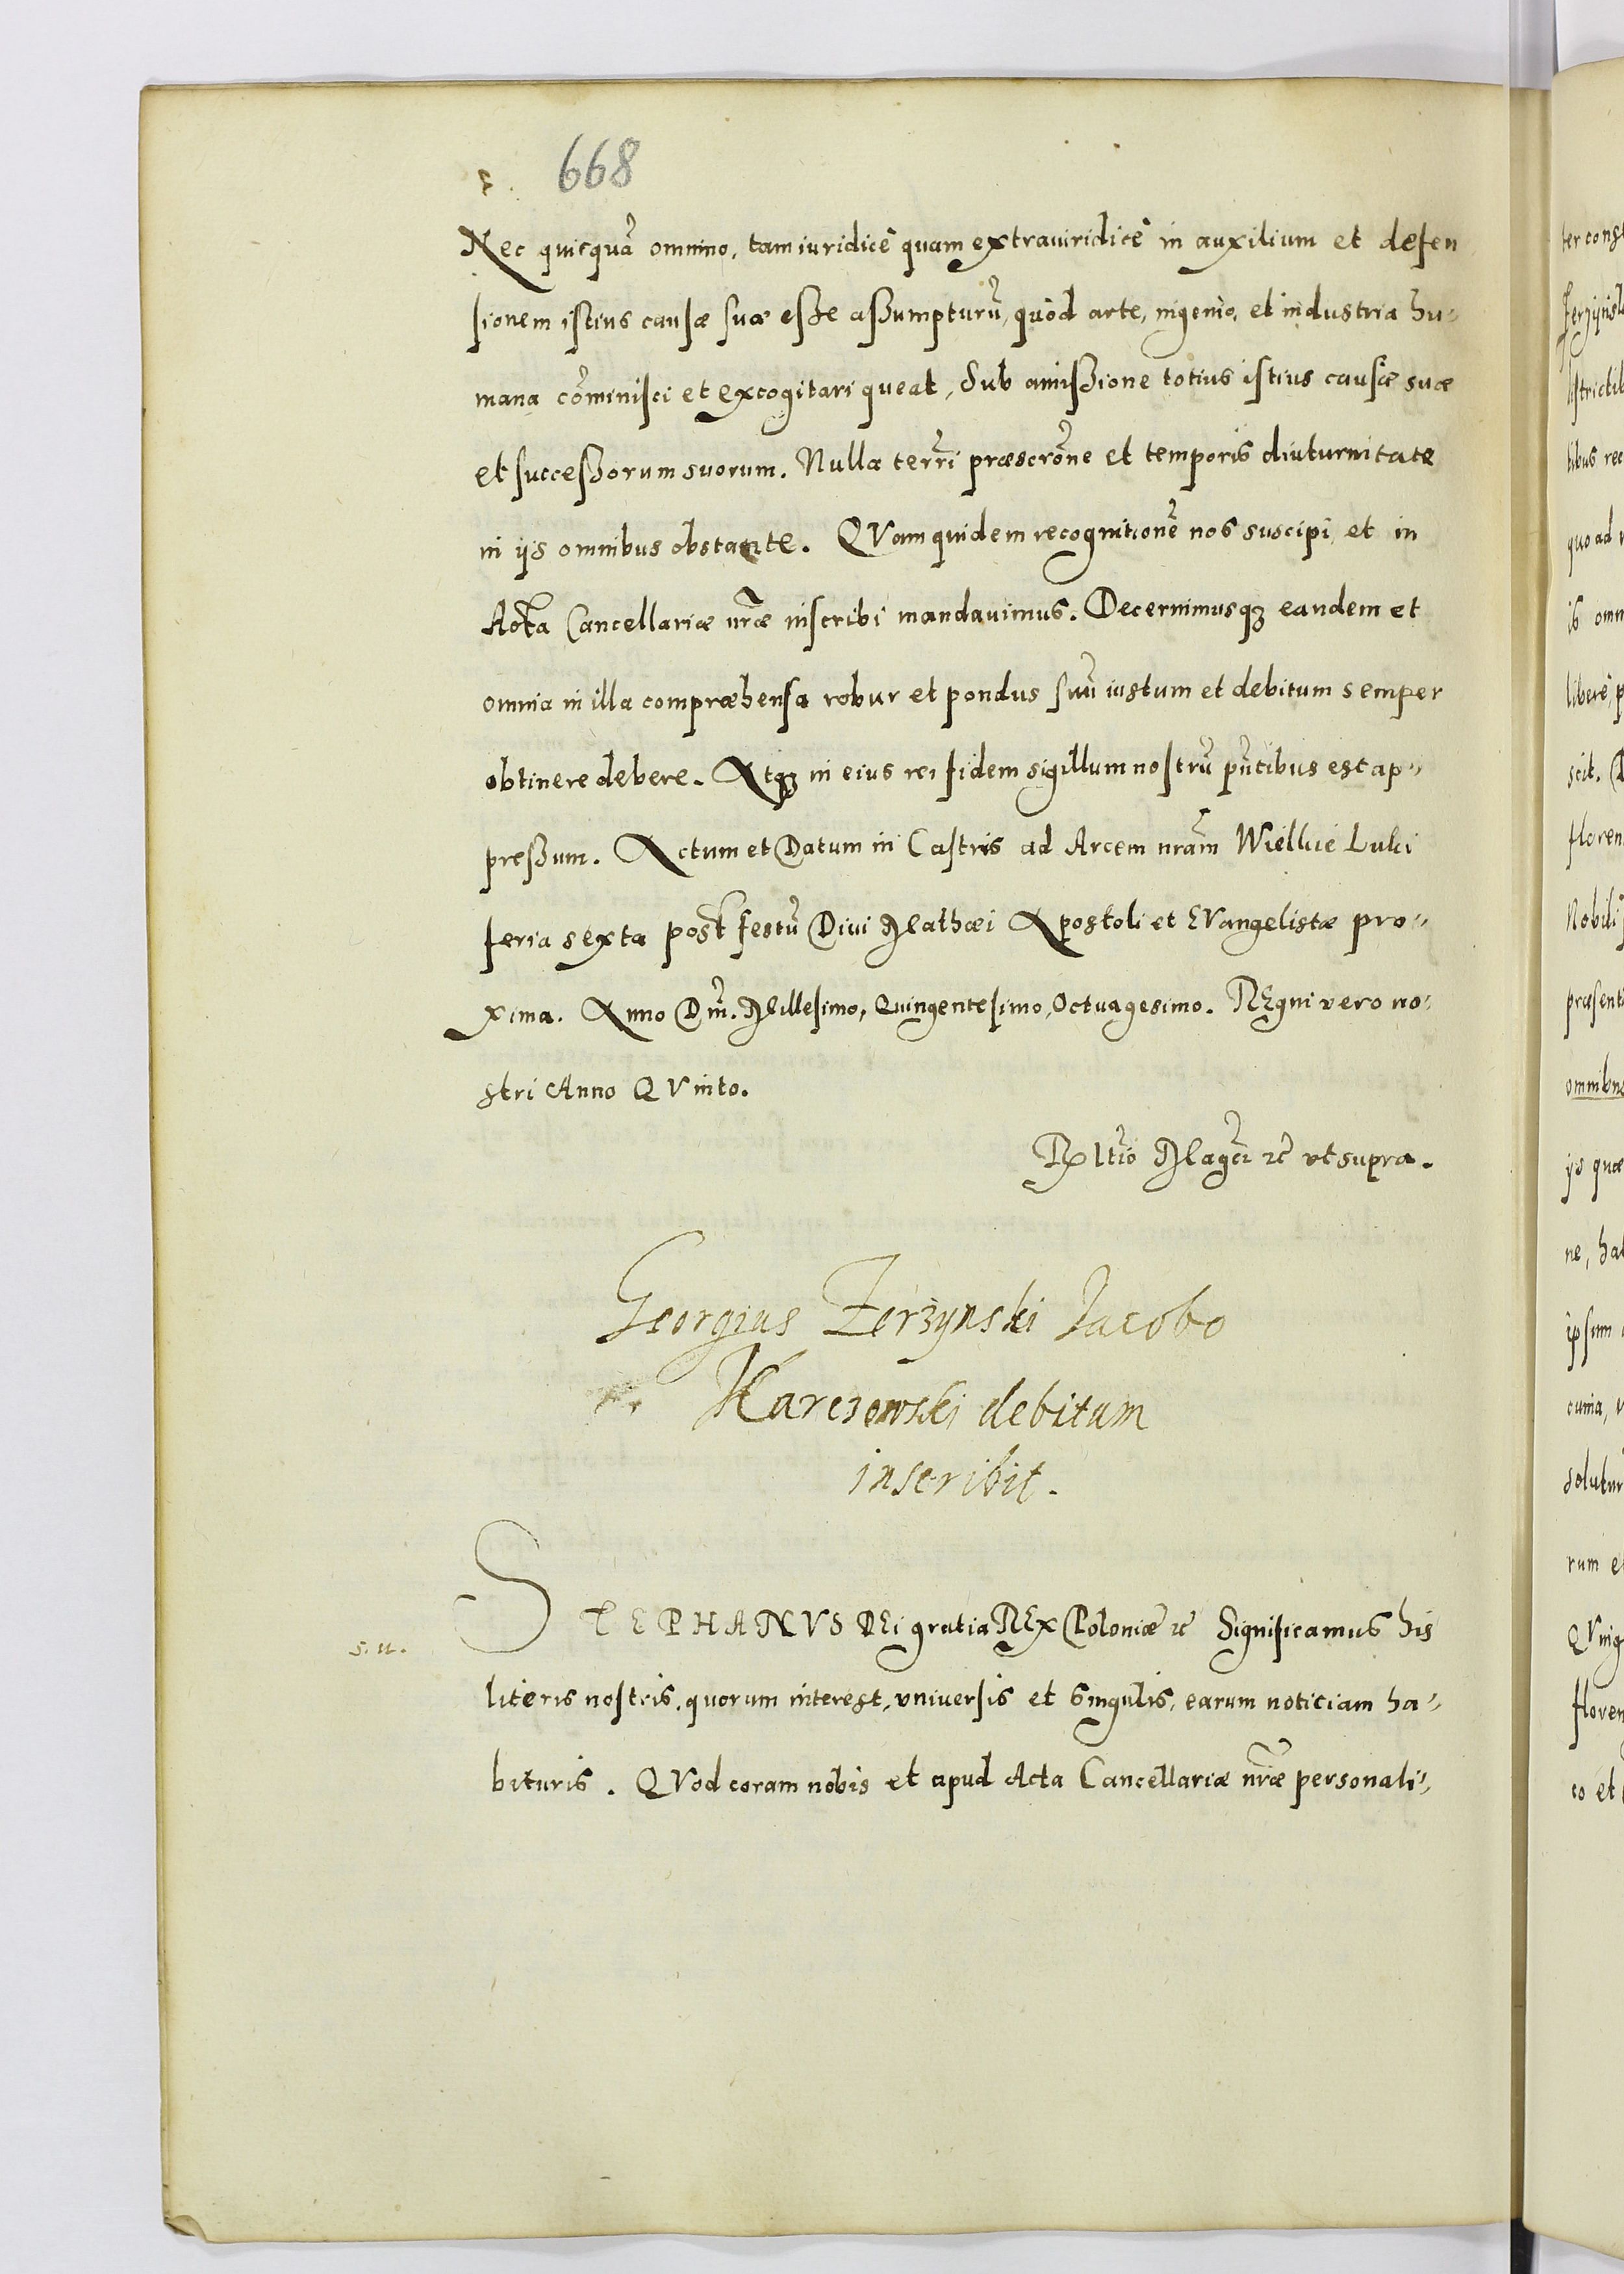 668
Nec quicquā omnino, tam iuridicè quam extraiuridicè in auxilium et defen
sionem istius causæ suæ esse assumpturū, quòd arte, ingenio, et industria hu-
mana cōminisci et excogitari queat, Sub amissione totius istius causæ suæ
et successorum suorum. Nulla terrī præscrone et temporis diuturnitate
in ijs omnibus obstante. QVam quidem recognitionē nos suscipi et in
Acta Cancellariæ nræ inscribi mandauimus. Decernimusqꝫ eandem et
omnia in illa compræhensa robur et pondus suū iustum et debitum semper
obtinere debere. Atqꝫ in eius rei fidem sigillum nostrū pntibus est ap-
pressum. Actum et Datum in Castris ad Arcem nram Wielkie Luki
feria sexta post festū Diui Mathæi Apostoli et EVangelistæ pro-
xima. Anno Dni. Millesimo, Quingentesimo, Octuagesimo. REgni vero no-
stri Anno QVinto.
Rltio Magci ꝛc vt supra.
Georgius Zerzynski Jacobo
Karczewski debitum
inscribit.
STEPHANVS DEi gratia REx Poloniæ ꝛc Significamus his
s. u.
literis nostris, quorum interest, vniuersis et singulis, earum noticiam ha-
bituris. QVod coram nobis et apud Acta Cancellariæ nræ personali-